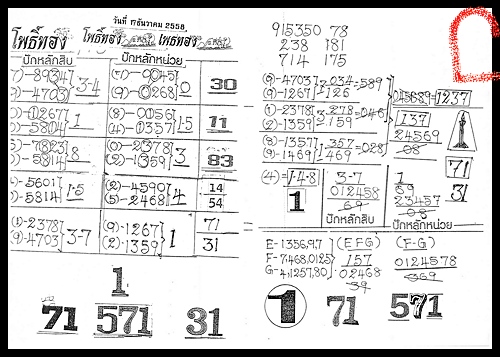 วันที่ 17ธันวาคม 2558
โพธิ์ทอง โพธิ์ทอง โพธิ์ทอง
ปักหลักสิบ ปักหลักหน่วย
-8934 3-4 -0045 0 30
-4703 (9)-0268
-0267 1 (8)-0056 1-5 11
-5804 (4)-0357
-7823 8 (0)-2378 3 83
-5814 (2)-1359
-5601 1-5 (2)-4590 4 14
-5814 (5)-2468 54
(1)-2378 3-7 (9)-1267 1 71
(9)-4703 (2)-1359 31
1
71 571 31
915350 78
238 181
714 175
(9)-4703 034-589
(9)-1267 126
045689=1237
(1)-2378 3 278=046
(2)-1359 159
137
24569
08
(8)-1357 357=028
(9)-1469 469
71
(4)=1-4-8 3-7 1 31
1 012458 69
69 23457
08
ปักหลักสิบ ปักหลักหน่วย
E-1356,97 (EFG) (F-G)
F-7468,0125 157 0124578
G-41257,80 02468 369
39
1 71 571